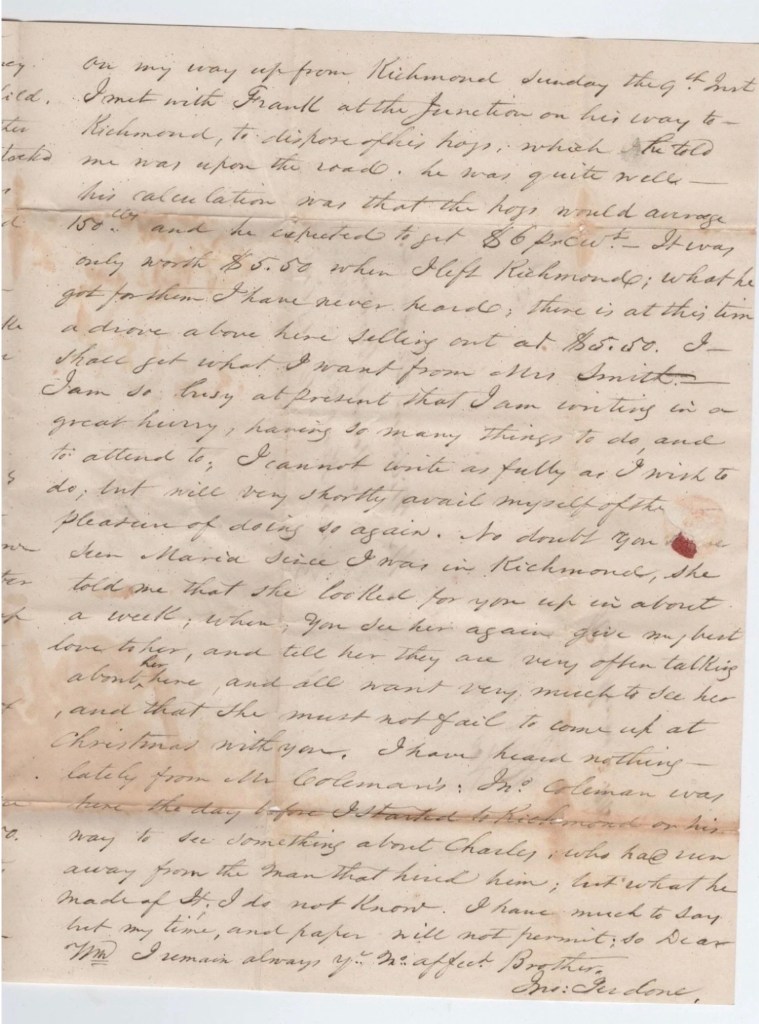 on my way up from Richmond Sunday the 9th Inst
I met with Frank at the Junction on his way to –
Richmond, to dispose of his hogs; which he told
me was upon the road. he was quite well –
his calculation was that the hogs would average
150 lbs and he expected to get $6 pr Cwt – It was
only worth $5.50 when I left Richmond; what he
got for them I have never heard; there is at this time
a drove above here selling out at $5.50. I –
shall get what I want from Mrs Smith. –
I am so busy at present that I am writing in a
great hurry, having so many things to do, and
to attend to; I cannot write as fully as I wish to
do; but will very shortly avail myself of the
pleasure of doing so again. No doubt you
seen Maria since I was in Richmond, she
told me that she looked for you up in about
a week; when, You see her again give my best
love to her, and tell her they are very often talking
about her here, and all want very much to see her
, and that she must not fail to come up at
Christmas with you. I have heard nothing –
lately from Mr Coleman's: Jno. Coleman was
here the day before I started to Richmond on his
way to see something about Charles, who had run
away from the man that hired him; but what he
made of It, I do not Know. I have much to say
but my time, and paper will not permit; so Dear
Wm I remain always yr. Mo. affect. Brother.
Jno: Perdone.